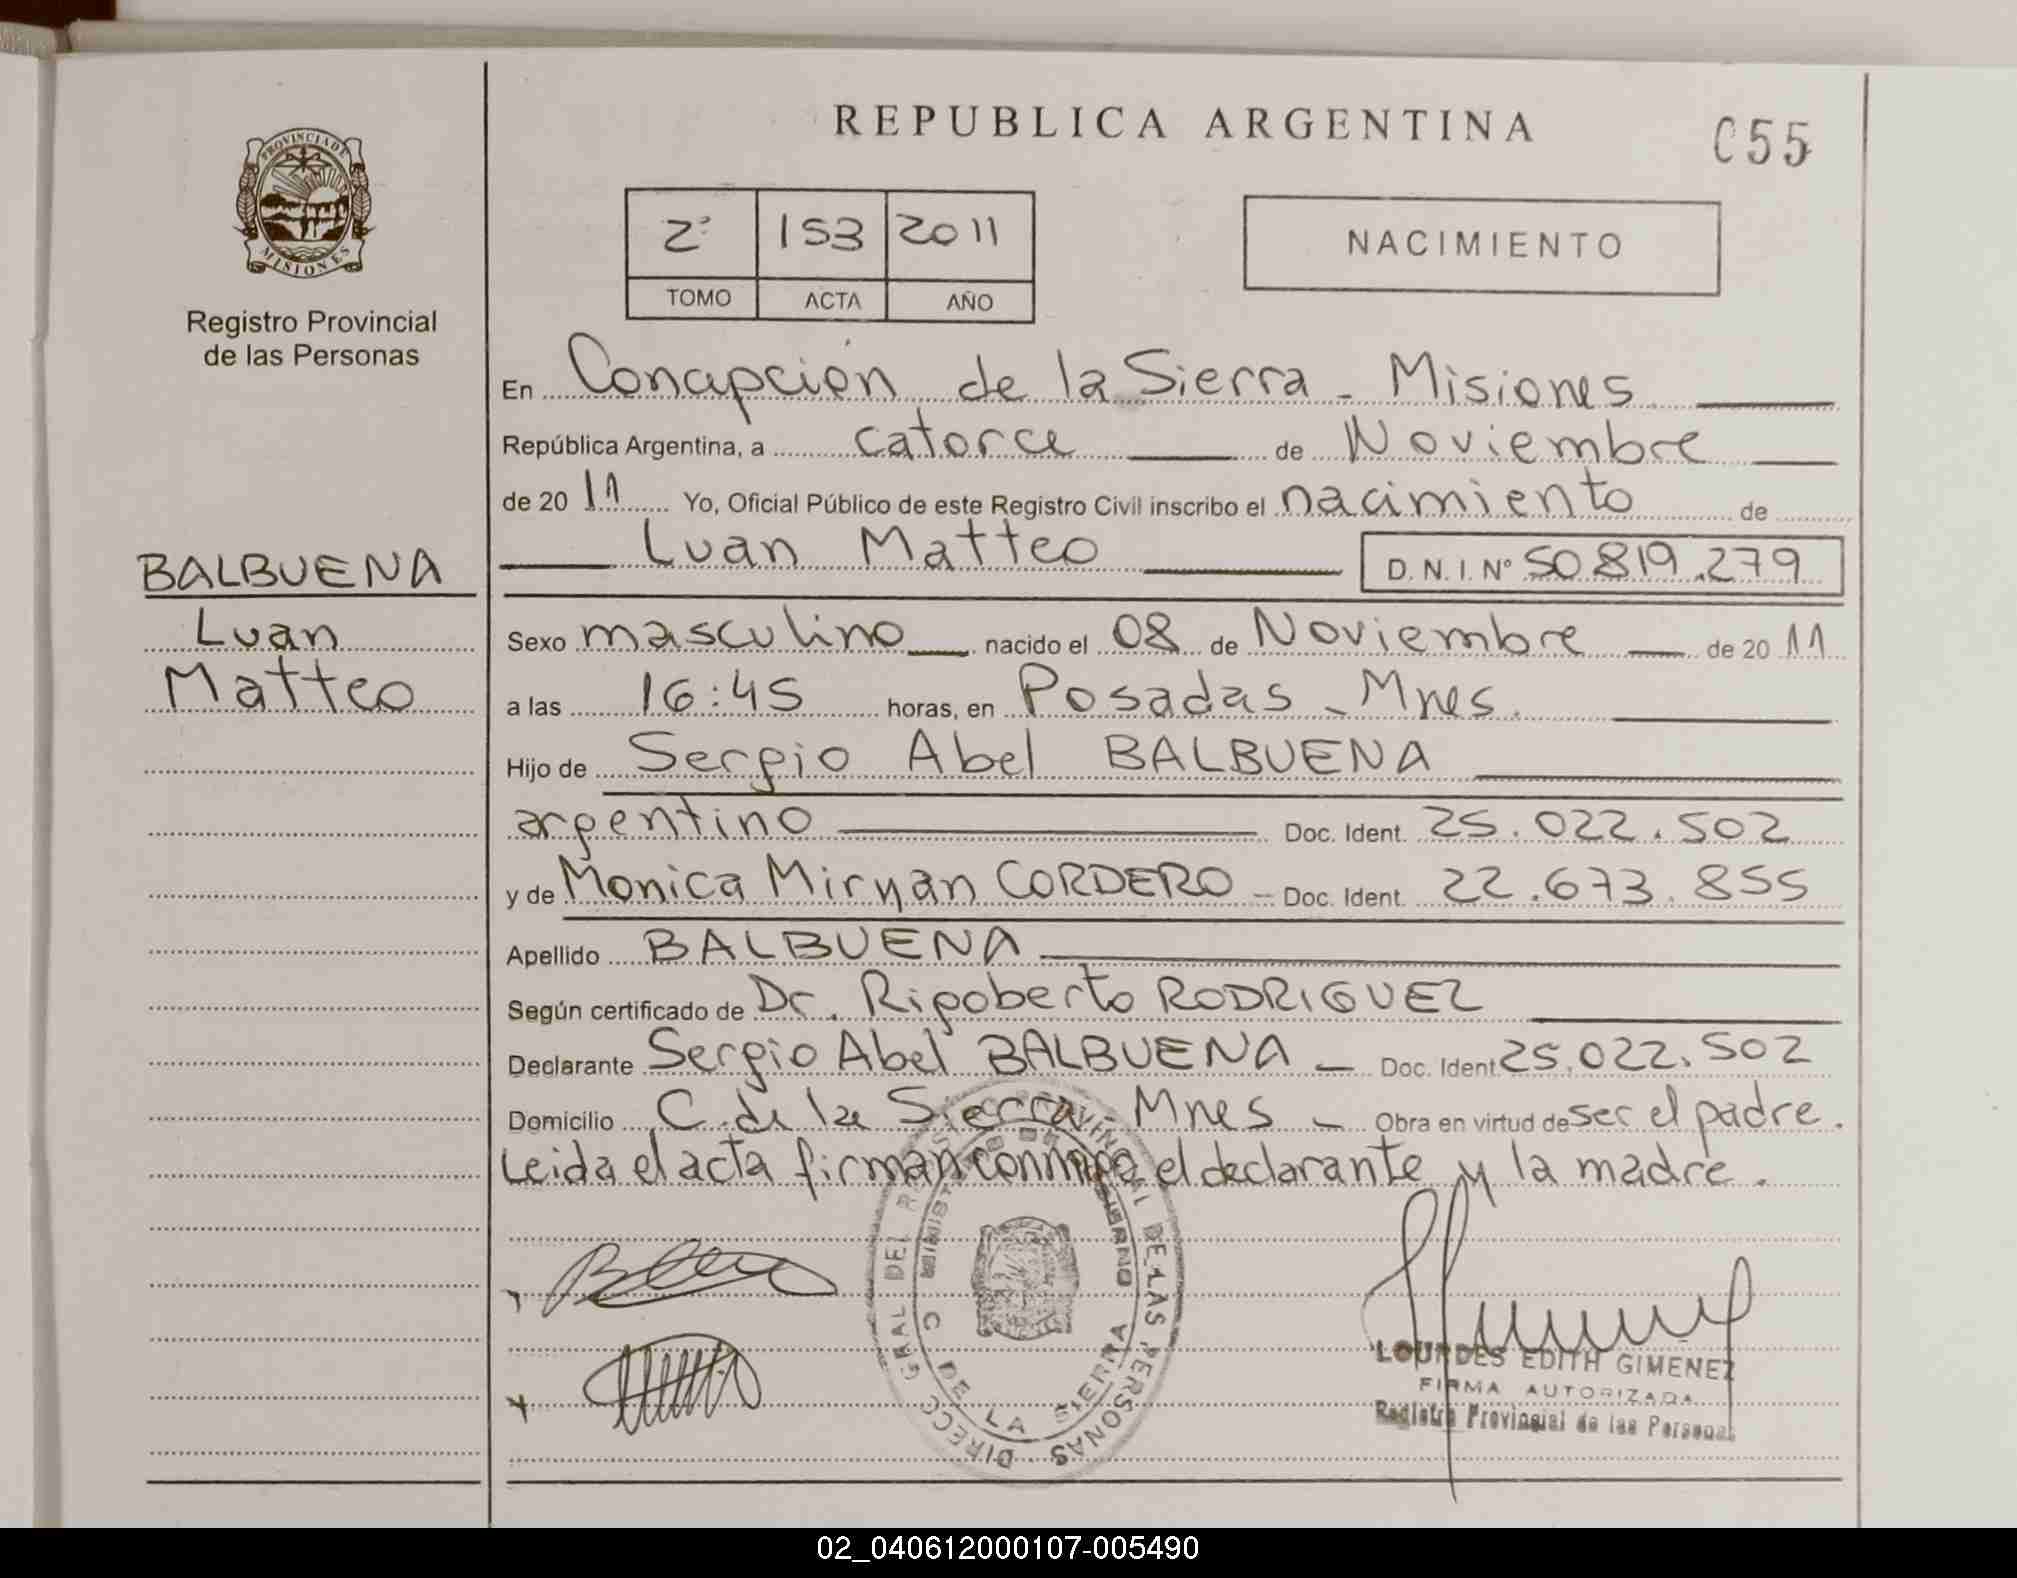 REPUBLICA ARGENTINA
C55
PROVINCIA DE
MISIONES
Registro Provincial
de las Personas
2º 153 2011
TOMO ACTA AÑO
NACIMIENTO
En Concepción de la Sierra - Misiones
República Argentina, a catorce de Noviembre
de 20 11 Yo, Oficial Público de este Registro Civil inscribo el nacimiento de
Luan Matteo D.N.I. Nº 50.819.279
BALBUENA
Luan
Matteo
Sexo masculino nacido el 08 de Noviembre de 20 11
a las 16:45 horas, en Posadas - Mnes.
Hijo de Sergio Abel BALBUENA
argentino Doc. Ident. 25.022.502
y de Monica Miryan CORDERO - Doc. Ident. 22.673.855
Apellido BALBUENA
Según certificado de Dr. Rigoberto RODRIGUEZ
Declarante Sergio Abel BALBUENA - Doc. Ident. 25.022.502
Domicilio C. de la Sierra - Mnes - Obra en virtud de ser el padre.
Leida el acta firman conmigo el declarante y la madre.
DIRECC GRAL DEL PROVINCIAL DE LAS PERSONAS
C DE LA SIERRA
LOURDES EDITH GIMENEZ
FIRMA AUTORIZADA
Registro Provincial de las Personas
02_040612000107-005490